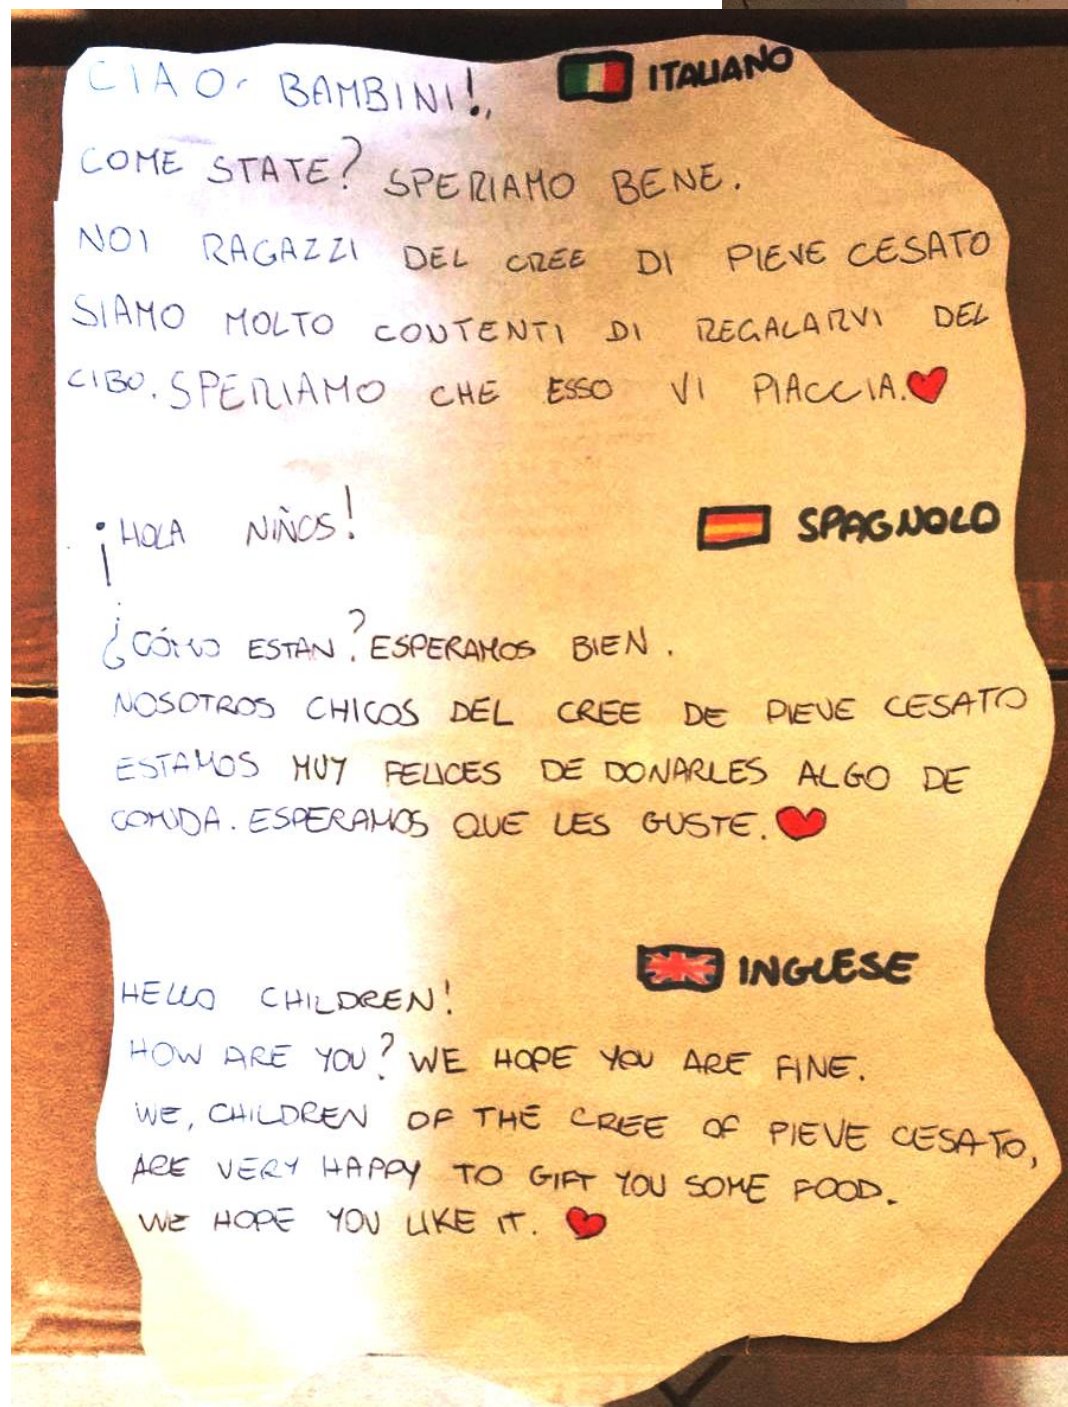 CIAO BAMBINI! ITALIANO
COME STATE? SPERIAMO BENE.
NOI RAGAZZI DEL CREE DI PIEVE CESATO
SIAMO MOLTO CONTENTI DI REGALARVI DEL
CIBO. SPERIAMO CHE ESSO VI PIACCIA. ❤
¡HOLA NIÑOS! SPAGNOLO
¿CÓMO ESTAN? ESPERAMOS BIEN.
NOSOTROS CHICOS DEL CREE DE PIEVE CESATO
ESTAMOS MUY FELICES DE DONARLES ALGO DE
COMIDA. ESPERAMOS QUE LES GUSTE. ❤
INGLESE
HELLO CHILDREN!
HOW ARE YOU? WE HOPE YOU ARE FINE.
WE, CHILDREN OF THE CREE OF PIEVE CESATO,
ARE VERY HAPPY TO GIFT YOU SOME FOOD.
WE HOPE YOU LIKE IT. ❤